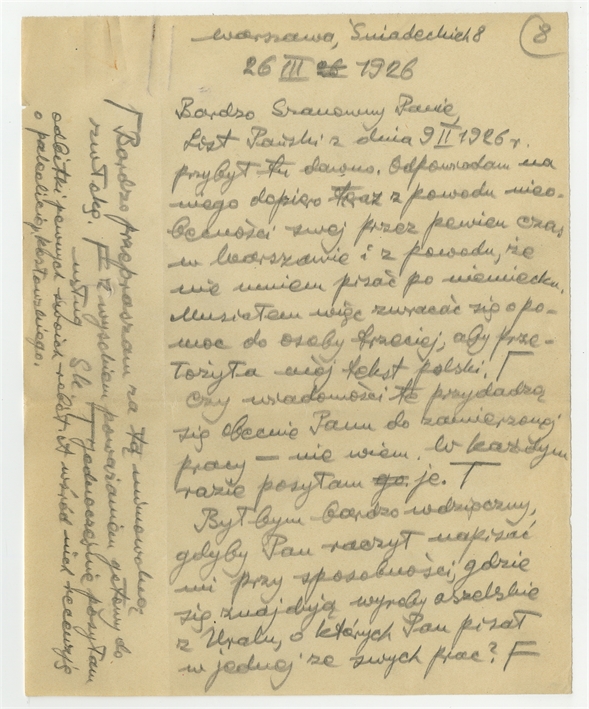 Warszawa, Śniadeckich 8
8
26 III 26 1926
Bardzo Szanowny Panie,
List Pański z dnia 9 II 1926 r.
przybył tu dawno. Odpowiadam na
niego dopiero teraz z powodu nieo-
becności swej przez pewien czas
w Warszawie i z powodu, że
nie umiem pisać po niemiecku.
Musiałem więc zwracać się o po-
moc do osoby trzeciej, aby prze-
łożyła mój tekst polski.
Czy wiadomości te przydadzą
się obecnie Panu do zamierzonej
pracy — nie wiem. W każdym
razie posyłam go je.
Byłbym bardzo wdzięczny,
gdyby Pan raczył napisać
mi przy sposobności, gdzie
się znajdują wyroby aszelskie
z Uralu, o których Pan pisał
w jednej ze swych prac?
Bardzo przepraszam za tą mimowolną
zwłokę. Z wysokiem poważaniem gotowy do
usług Sk Jednocześnie posyłam
odbitki pewnych swoich robót. A wśród nich recenzję
o paleolicie